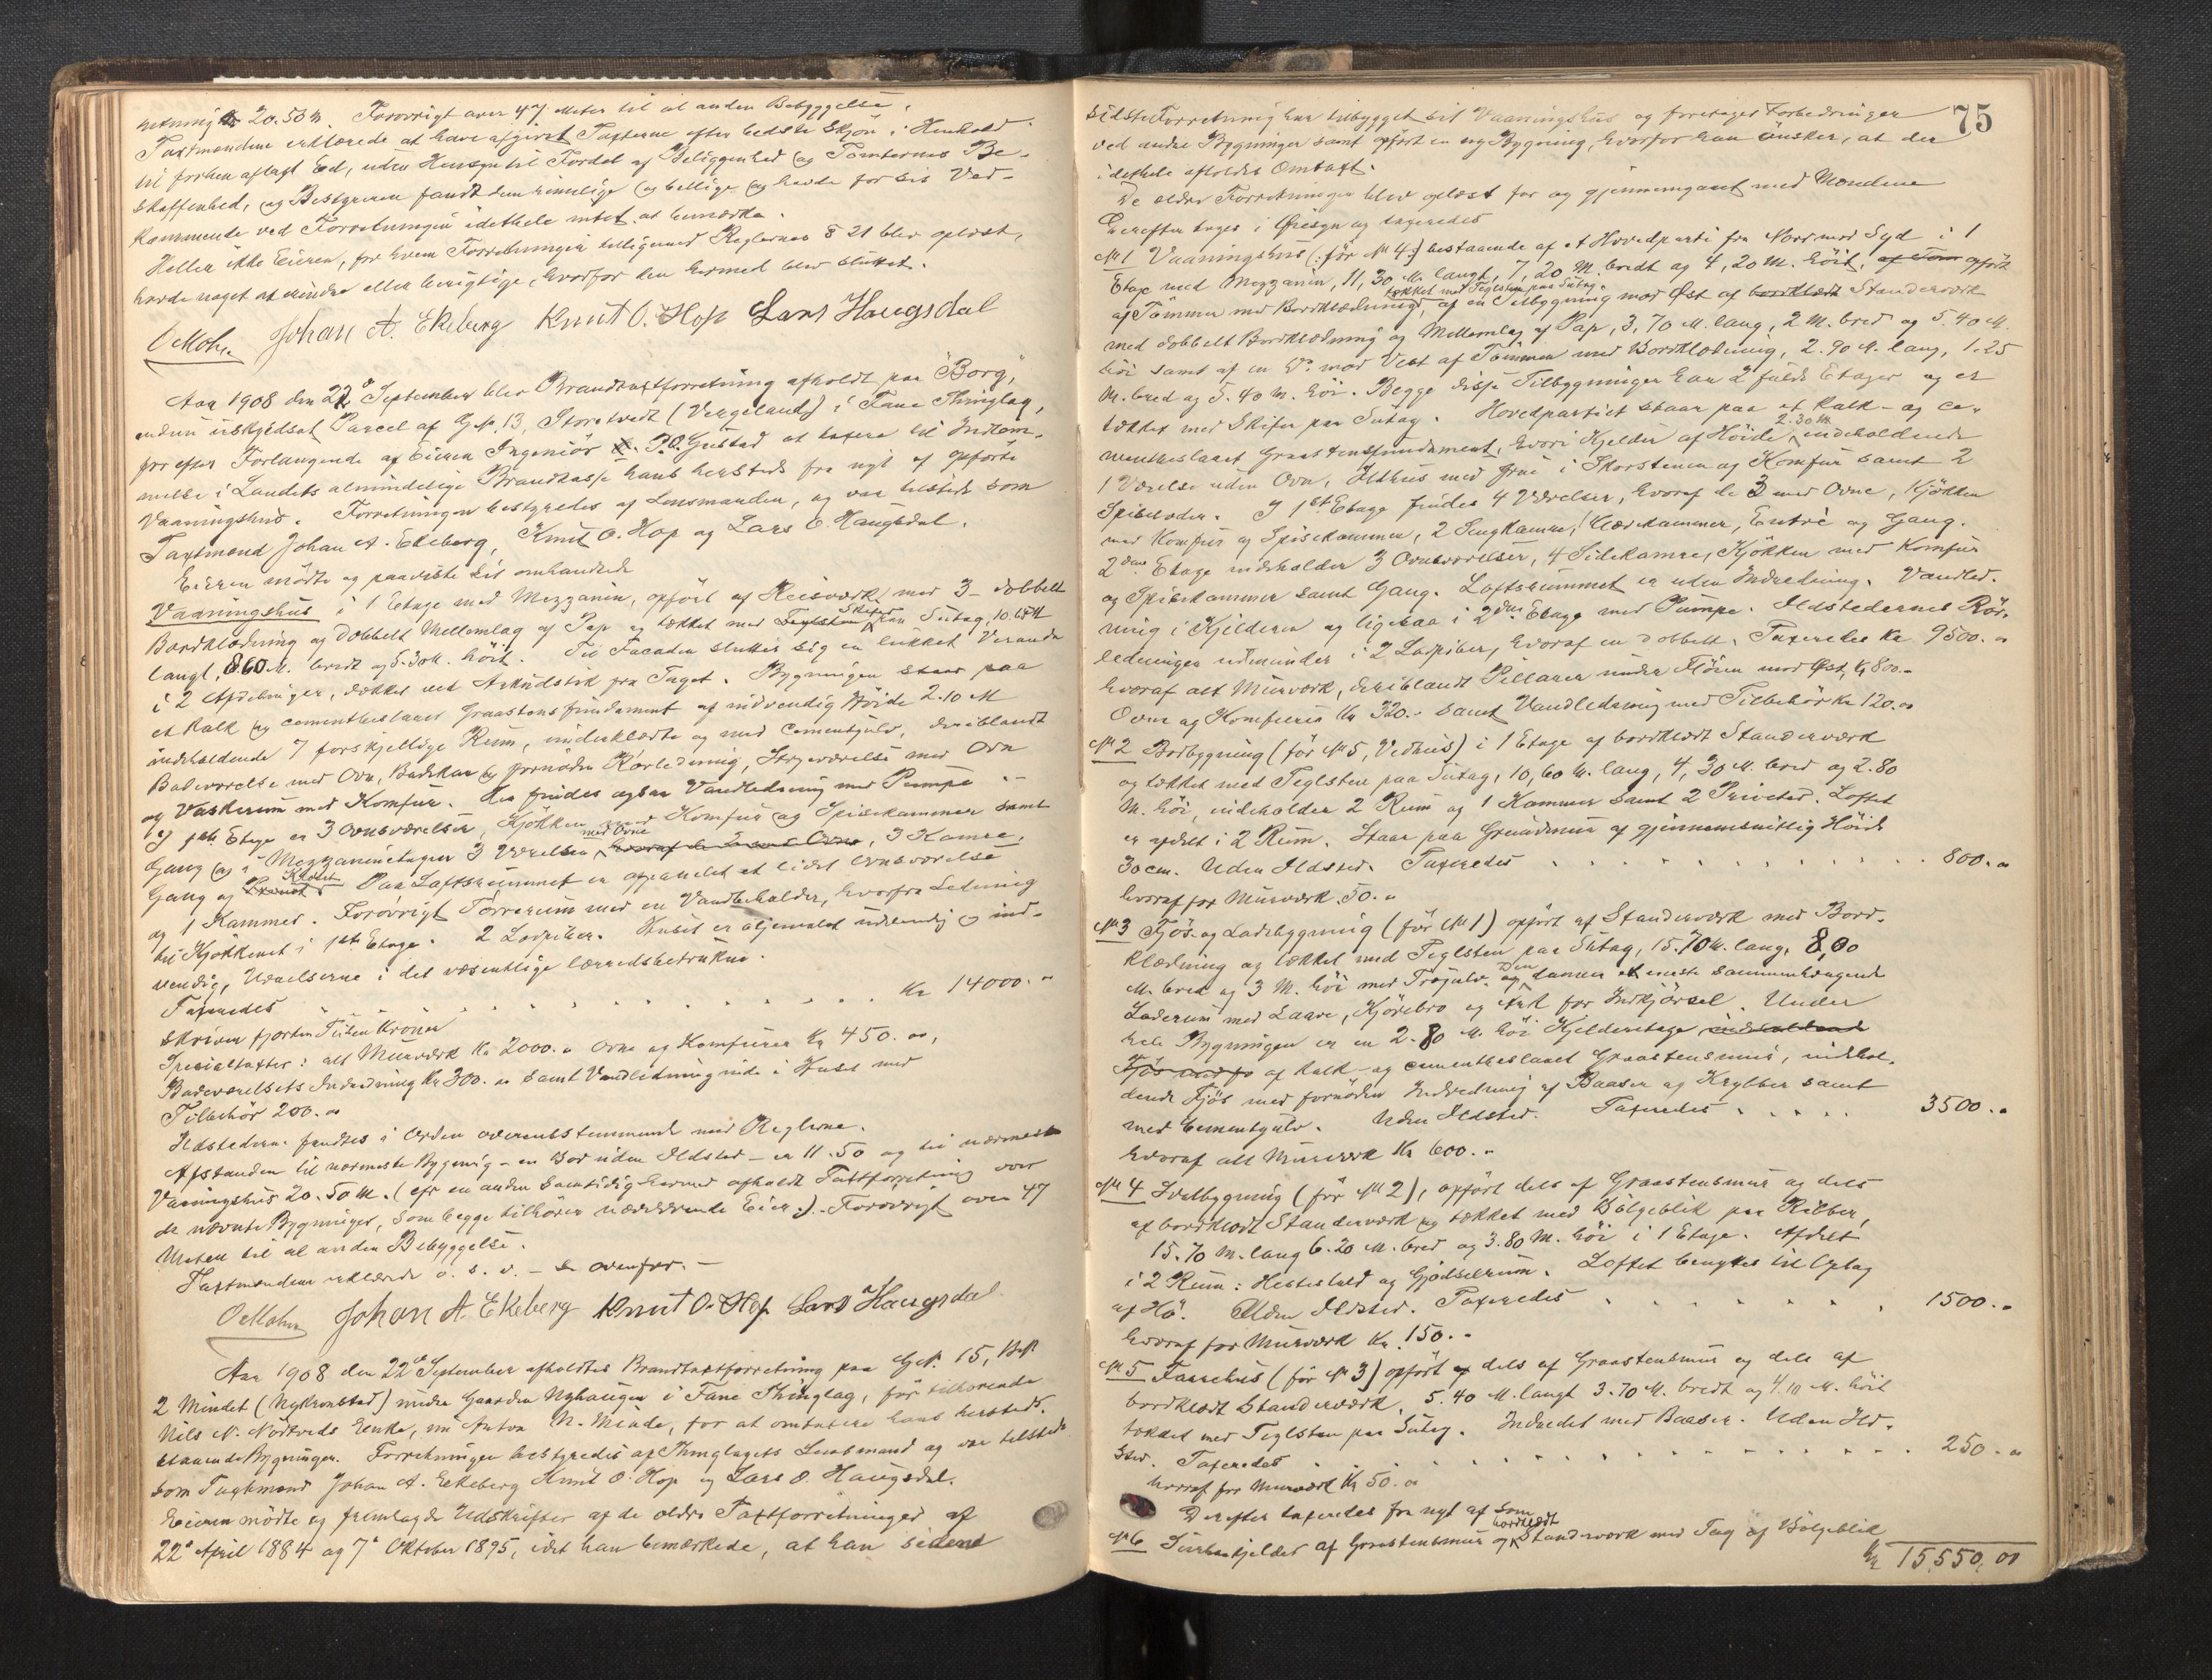 20.50 m. Forøvrigt over 47 Meter til al anden Bebyggelse.
Taxtmændene erklærede at have afgivet Taxterne efter bedste Skjøn i Henhold
til forhen aflagt Ed, uden Hensyn til Fordel af Beliggenhed og Tomternes Be-
skaffenhed, og Bestyreren fandt dem rimelige og billige og havde for sit Ved-
kommende ved Forretningen idethele intet at bemærke.
Heller ikke Eieren, for hvem Forretningen tilligemed Reglernes § 21 blev oplæst,
havde noget at erindre eller berigtige, hvorfor den hermed blev sluttet.
OMohn Johan A. Ekeberg Knut O. Hop Lars Haugsdal
Aar 1908 den 22d September blev Brandtaxtforretning afholdt paa "Borg",
en uskyldsat Parcel af G.No. 13, Storetvedt (Vergeland) i Fane Thinglag,
for efter Forlangende af Eieren Ingeniør P.O. Gjestad at taxere til Indlem-
melse i Landets almindelige Brandkasse hans hersteds fra nyt af opførte
Vaaningshus. Forretningen bestyredes af Lensmanden, og var tilstede som
Taxtmænd Johan A. Ekeberg, Knut O. Hop og Lars O. Haugsdal.
Eieren mødte og paaviste sit omhandlede
Vaaningshus i 1 Etage med Mezzanin, opført af Reisværk med 3-dobbelt
Bordklædning og dobbelt Mellemlag af Pap og tækket med Teglsten Skifer paa Sutag, 10.65 M
langt, 8.60 M. bredt og 5.30 M. høit. Til Facaden slutter sig en lukket Veranda
i 2 Afdelinger, dækket ved Arkudstik fra Taget. Bygningen staar paa
et Kalk og cementbeslaaet Graastensfundament af indvendig Høide 2.10 M
indeholdende 7 forskjellige Rum, underklædte og med Cementgulv, deriblandt
Badeværelse med Ovn, Badekar og fornøden Rørledning, Strygeværelse med Ovn
og Vaskerum med Komfur. Her findes ogsaa Vandledning med Pumpe.
I 1ste Etage er 3 Ovnsværelser, Kjøkken med Komfur og Spisekammer samt
Gang og i Mezzaninetagen 3 Værelser med Ovne hvoraf de Ovne, 3 Kamre,
Gang og Klosset. Paa Loftsrummet er afpanelet et lidet Ovnsværelse
og 1 Kammer. Forøvrigt Tørrerum med en Vandbeholder, hvorfra Ledning
til Kjøkkenet i 1ste Etage. 2 Lovpiber. Huset er oljemalet udvendig og ind-
vendig, Værelserne i det væsentlige lærredsbetrukne.
Taxeredes . . . . . . . . . . Kr 14000.00
skriver fjorten Tusen Kroner
Specialtaxter: alt Murværk Kr 2000.00 Ovne og Komfurer Kr 450.00,
Badeværelsets Indredning Kr 300.00 samt Vandledning inde i Huset med
Tilbehør 200.00
Ildstederne fandtes i Orden overensstemmende med Reglerne.
Afstanden til nærmeste Bygning - en Bod uden Ildsted - er 11.50 og til nærmeste
Vaaningshus 20.50 M. (efr en anden samtidig hermed afholdt Taxtforretning over
de nævnte Bygninger, som begge tilhører nærværende Eier.). Forøvrigt over 47
Meter til al anden Bebyggelse.
Taxtmændene erklærede o. s. v. - se ovenfor. -
OMohn Johan A. Ekeberg Knut O. Hop Lars Haugsdal
Aar 1908 den 22d September afholdtes Brandtaxtforretning paa G.No. 15, B.No.
2 Mindet (Nykronstad) under Gaarden Nyhaugen i Fane Thinglag, før tilhørende
Nils N. Nørtveds Enke, nu Anton N. Minde, for at omtaxere hans hersteds
staaende Bygninger. Forretningen bestyredes af Thinglagets Lensmand og var tilstede
som Taxtmænd Johan A. Ekeberg Knut O. Hop og Lars O. Haugsdal.
Eieren mødte og fremlagde Udskrifter af de ældre Taxtforretninger af
22d April 1884 og 7d Oktober 1895, idet han bemærkede, at han siden
75
sidste Forretning har tilbygget sit Vaaningshus og foretaget Forbedringer
ved andre Bygninger samt opført en ny Bygning, hvorfor han ønsker, at der
idethele afholdes Omtaxt.
De ældre Forretninger blev oplæst for og gjennemgaaet med Mændene
Derefter toges i Øiesyn og taxeredes
No 1 Vaaningshus (: før No 4:) bestaaende af et Hovedparti fra Nord mod Syd i 1
Etage med Mezzanin, 11,30 M. langt, 7,20 M. bredt og 4,20 M. høit, af Tøm opført
af Tømmer med Bordklædning, tækket med Teglsten paa Sutag, af en Tilbygning mod Øst af bordklædt Standerværk
med dobbelt Bordklædning og Mellemlag af Pap, 3,70 M. lang, 2 M. bred og 5.40 M.
høi samt af en Do. mod Vest af Tømmer med Bordklædning, 2.90 M. lang, 1.25
M. bred og 5.40 M. høi. Begge disse Tilbygninger har 2 fulde Etager og er
tækket med Skifer paa Sutag. Hovedpartiet staar paa et Kalk- og ce-
mentbeslaaet Graastensfundament, hvori Kjelder af Høide 2.30 M. indeholdende
1 Værelse uden Ovn, Ildhus med Grue i Skorstenen og Komfur samt 2
Spiseboder. I 1st Etage findes 4 Værelser, hvoraf de 3 med Ovne, Kjøkken
med Komfur og Spisekammer, 2 Sengkamre, 1 Klædekammer, Entré og Gang.
2den Etage indeholder 3 Ovnsværelser, 4 Sidekamre, Kjøkken med Komfur
og Spisekammer samt Gang. Loftsrummet er uden Indredning. Vandled-
ning i Kjelderen og ligesaa i 2den Etage med Pumpe. Ildstedernes Rør-
ledninger udmunder i 2 Lovpiber, hvoraf en dobbelt. Taxeredes Kr 9500.00
hvoraf alt Murværk, deriblandt Pillarer under Fløien mod Øst, Kr 800.-
Ovne og Komfurer Kr 320.- samt Vandledning med Tilbehør Kr 120.00
No 2 Bodbygning (før No 5, Vedhus) i 1 Etage af bordklædt Standerværk
og tækket med Teglsten paa Sutag, 10,60 M. lang, 4,30 M. bred og 2.80
M. høi, indeholder 2 Rum og 1 Kammer samt 2 Priveter. Loftet
er afdelt i 2 Rum. Staar paa Grundmur af gjennemsnitlig Høide
30 cm. Uden Ildsted. Taxeredes . . . . . . . . 800.00
hvoraf for Murværk 50.00
No 3 Fjøs- og Ladebygning (før No 1) opført af Standerværk med Bord-
klædning og tækket med Teglsten paa Sutag, 15.70 M. lang, 8,00
M. bred og 3 M. høi med Trægulv. Den danner et eneste sammenhængende
Laderum med Laave, Kjørebro og Ark for Indkjørsel. Under
hele Bygningen er en 2.80 M. høi Kjelderetage indeholdende
Fjøs med fo af Kalk- og cementbeslaaet Graastensmur, indehol-
dende Fjøs med fornøden Indredning af Baaser og Krybber samt
med Cementgulv. Uden Ildsted. Taxeredes . . . . 3500.00
hvoraf alt Murværk Kr 600.-
No 4 Svalbygning (før No 2), opført dels af Graastensmur og dels
af bordklædt Standerværk og tækket med Bølgeblik paa Ræber,
15.70 M. lang 6.20 M. bred og 3.80 M. høi i 1 Etage. Afdelt
i 2 Rum: Hestestald og Gjødselrum. Loftet benyttes til Oplag
af Hø. Uden Ildsted. Taxeredes . . . . . . 1500.00
hvoraf for Murværk Kr. 150.-
No 5 Faarehus (før No 3) opført af dels af Graastensmur og dels af
bordklædt Standerværk, 5.40 M. langt 3.70 M. bredt og 4.10 M. høit
tækket med Teglsten paa Sutag. Indredet med Baaser. Uden Ild-
sted. Taxeredes . . . . . . . . . . 250.00
hvoraf for Murværk Kr 50.00
Derefter taxeredes fra nyt af som
No 6 af Graastensmur og bordklædt Standerværk med Tag af Bølgeblik
Kr 15,550,00